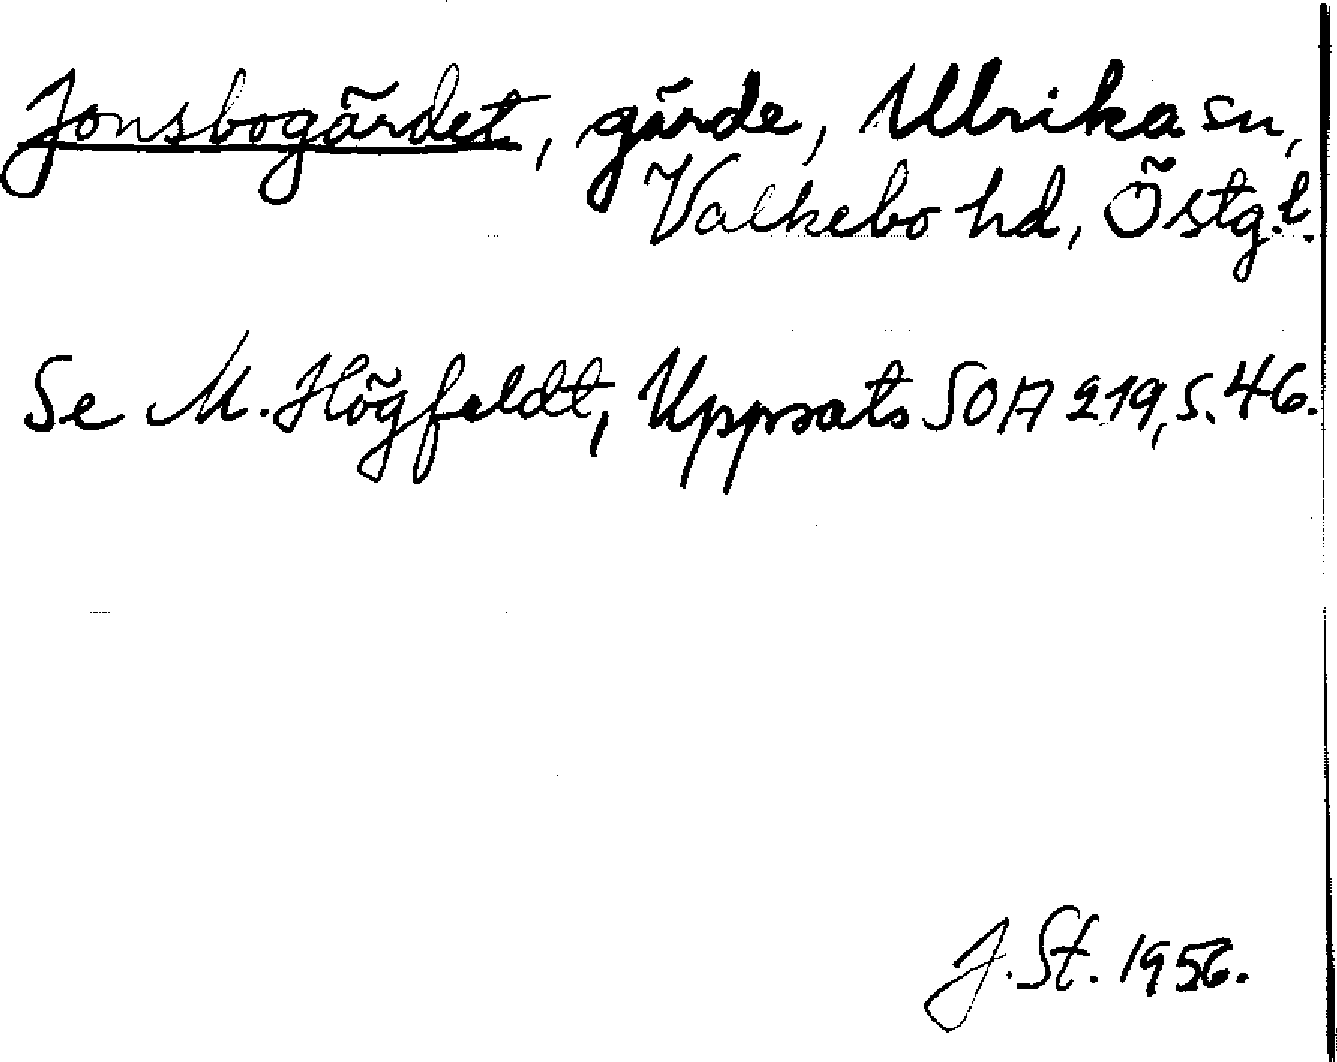 Jonsbogärdet, gärde, Ulrika sn,
Valkebo hd, Östg.l.
Se M. Högfeldt, Uppsats SOA 219, s. 46.
J. St. 1956.